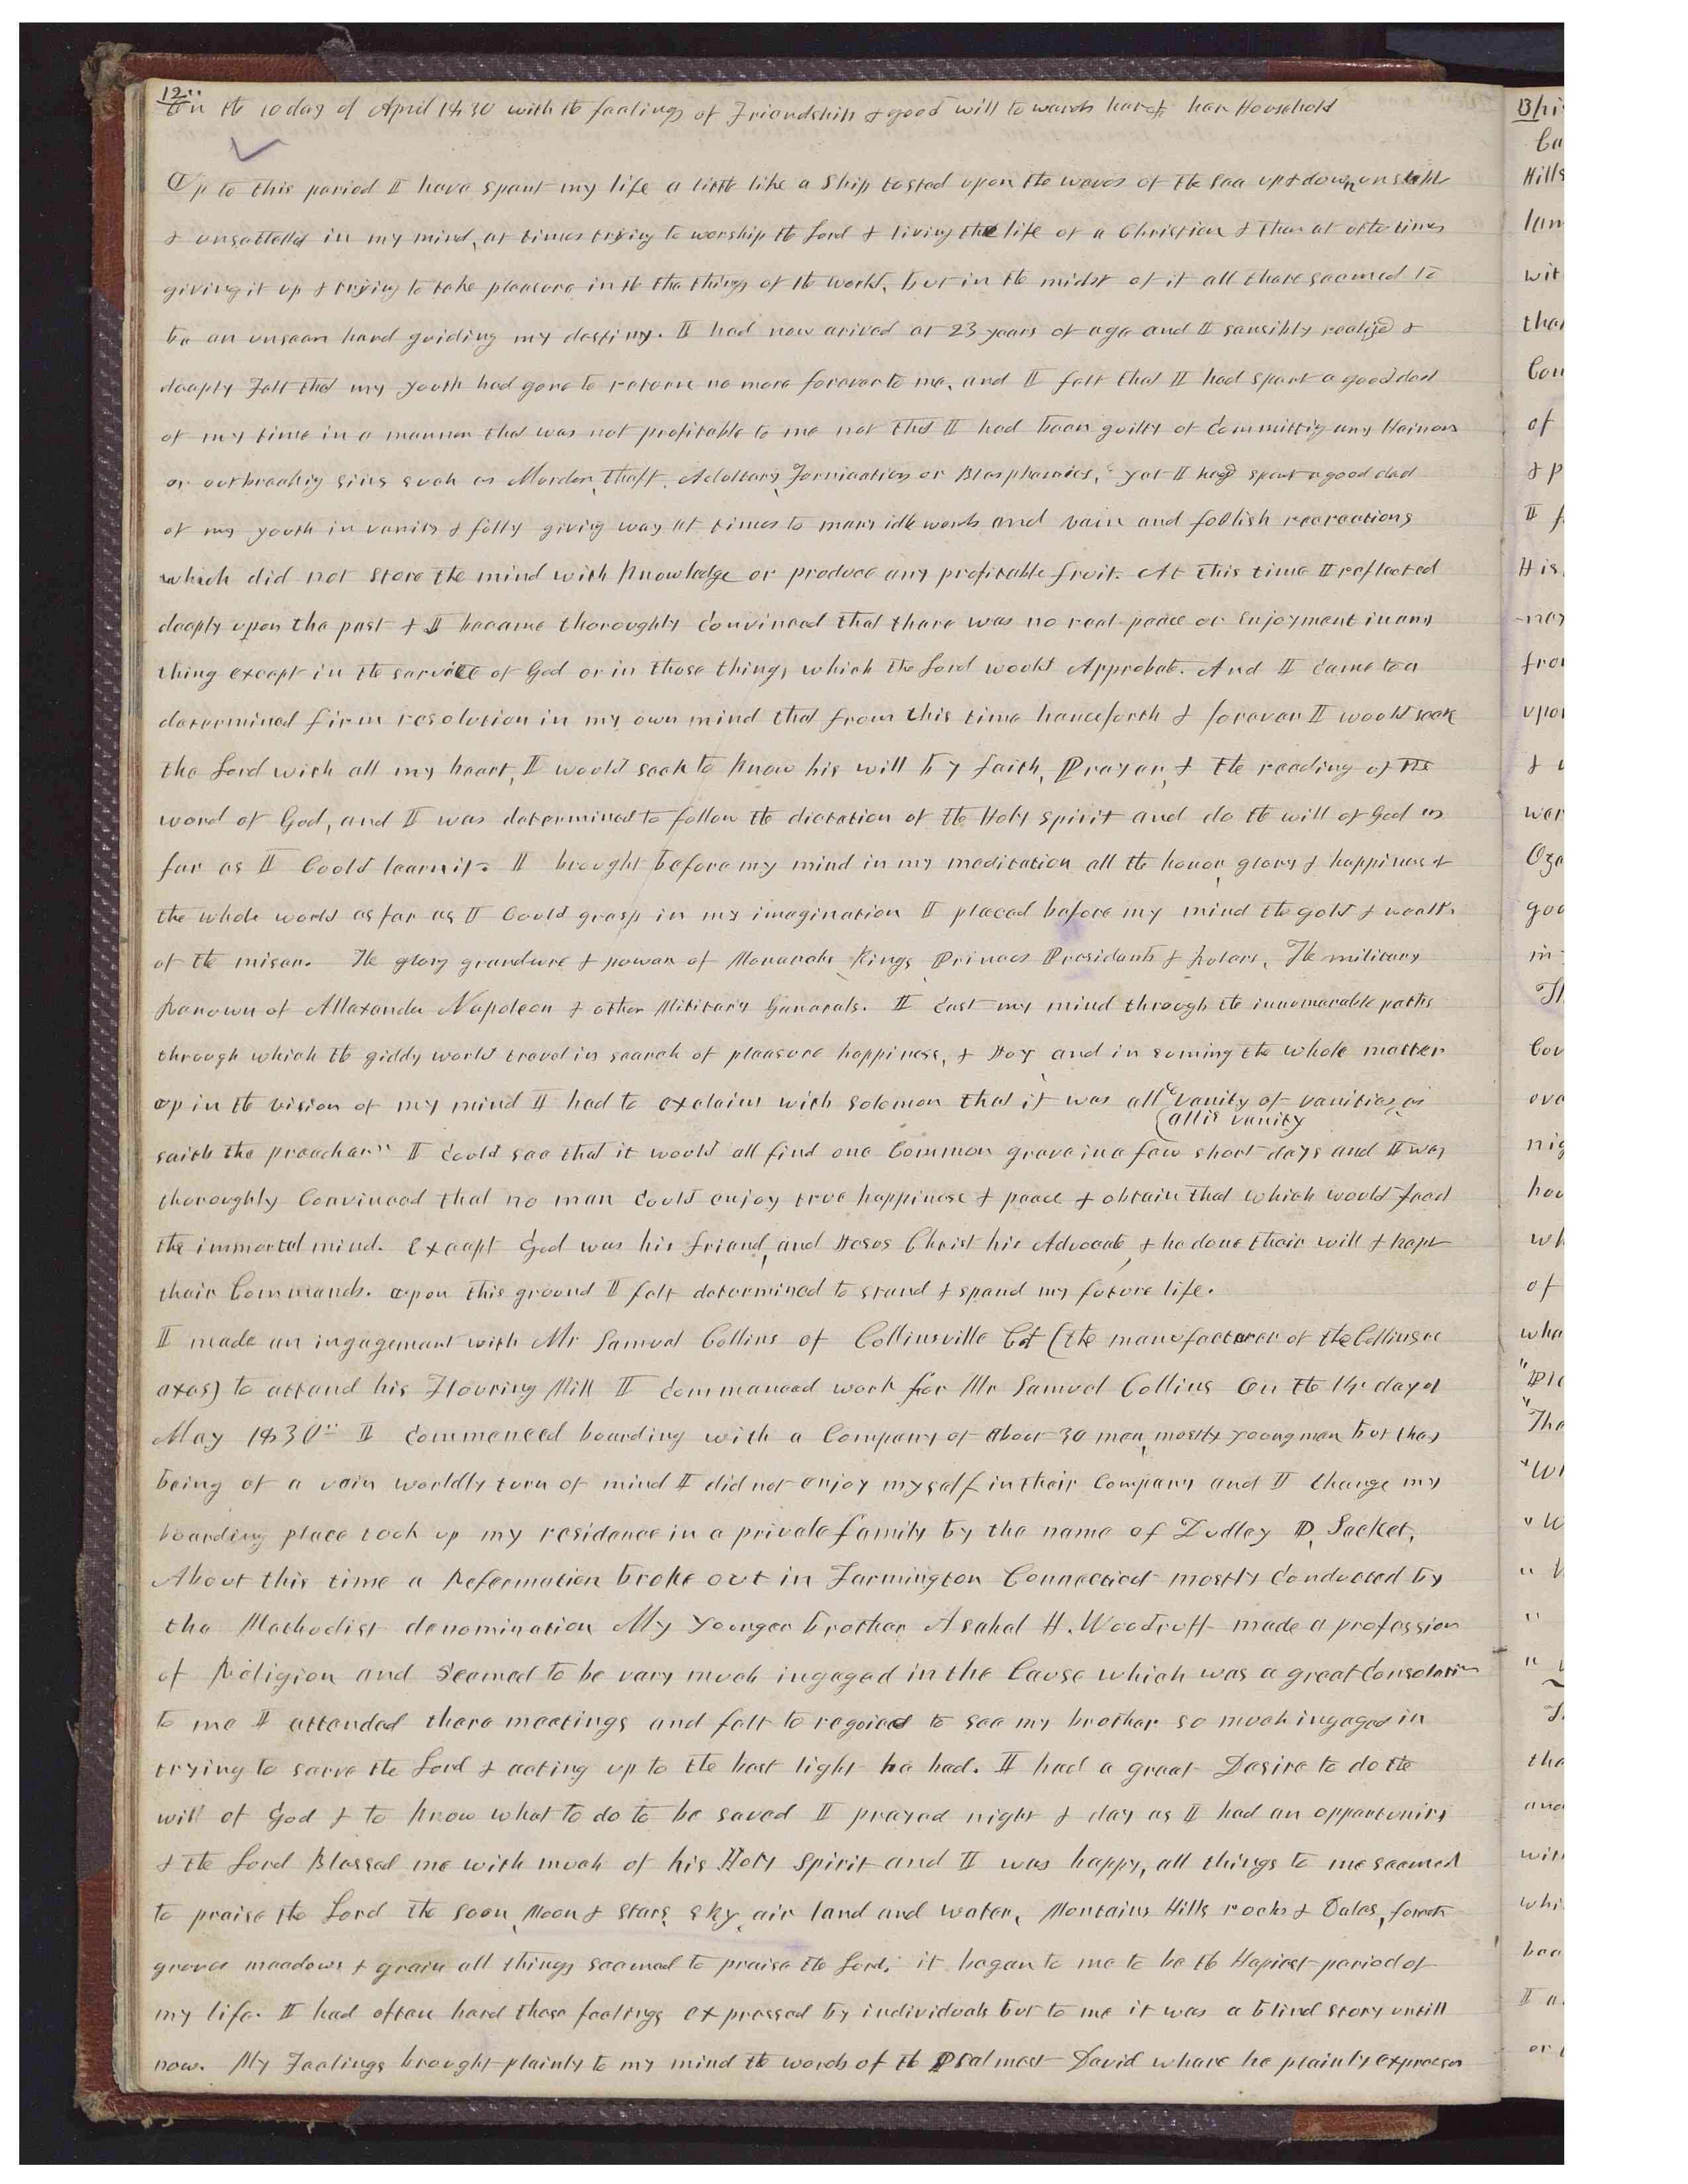 12"
On the 10 day of April 1830 with the feelings of Friendship & good will towards her & her Household
Up to this period I have spent my life a little like a Ship tosted upon the waves of the sea up & down unstable
& unsettelled in my mind, at times trying to worship the Lord & living the life of a Christian & then at othe times
giving it up & trying to take pleasure in the the things of the world, but in the midst of it all there seemed to
be an unseen hand guiding my destiny. I had now arived at 23 years of age and I sensibly realized &
deeply Felt that my youth had gone to return no more forever to me, and I felt that I had spent a good deal
of my time in a manner that was not profitable to me not that I had been guilty of Committig any Hainous
or outbreakig sins such as Murder, theft, Adultery, Forniaation or Blasphemies, yet I had spent a good deal
of my youth in vanity & folly giving way at times to many idle words and vain and foolish recreations
which did not store the mind with knowledge or produce any profitable fruit. At this time I reflected
deeply upon the past & I became thoroughly Convinced that there was no real peace or Enjoyment in any
thing except in the service of God or in those things which the Lord would Approbate. And I came to a
determined firm resolution in my own mind that from this time henceforth & forever I would seek
the Lord with all my heart, I would seek to know his will by faith, Prayer, & the reading of the
word of God, and I was determined to follow the dictation of the Holy spirit and do the will of God as
far as I Could learn it. I brought before my mind in my meditation all the honor, glory & happiness of
the whole world as far as I Could grasp in my imagination I placed before my mind the gold & wealth
of the miser. The glory grandure & power of Monarchs, Kings, Princes Presidents & Rulers, The military
Renown of Allaxander Napoleon & other Military Generals. I Cast my mind through the innumerable paths
through which the giddy world travel in search of pleasure happiness, & Joy, and in suming the whole matter
up in the vision of my mind I had to exclaim with Solomon that it was all "vanity of vanities, as
(all is vanity
saith the preacher" I Could see that it would all find one Common grave in a few short days and I was
thoroughly Convinced that no man Could enjoy true happiness & peace & obtain that which would feed
the immortal mind. Except God was his friend, and Jesus Christ his Advocate, & he done their will & kept
their Commands. upon this ground I felt determined to stand & spend my future life.
I made an ingagement with Mr Samuel Collins of Collinsville Ct (the manufacturer of the Collins ce
axes) to attend his Flouring Mill I Commenced work for Mr Samuel Collins On the 14 day of
May 1830" I Commenced boarding with a Company of About 30 men, mostly young men but they
being of a vain worldly turn of mind I did not enjoy myself in their Company and I Change my
boarding place took up my residence in a private family by the name of Dudley D, Sacket,
About this time a Reformation broke out in Farmington Connecticut mostly Conducted by
the Methodist denomination My Younger brother Asahel H. Woodruff made a profession
of Religion and Seemed to be very much ingaged in the Cause which was a great Consolation
to me I attended there meetings and felt to regoiced to see my brother so much ingaged in
trying to serve the Lord & acting up to the best light he had. I had a great Desire to do the
will of God & to know what to do to be saved I prayed night & day as I had an opportunity
& the Lord Blessed me with much of his Holy Spirit and I was happy, all things to me seemed
to praise the Lord the Soon, Moon & Stars, sky, air land and water, Montains Hills rocks & Dales, forests
groves meadows & grain all things seemed to praise the Lord. it began to me to be the Hapiest period of
my life. I had often hard these feelings expressed by individuals but to me it was a blind story untill
now. My Feelings brought plainly to my mind the words of the Psalmest David where he plainly expresses